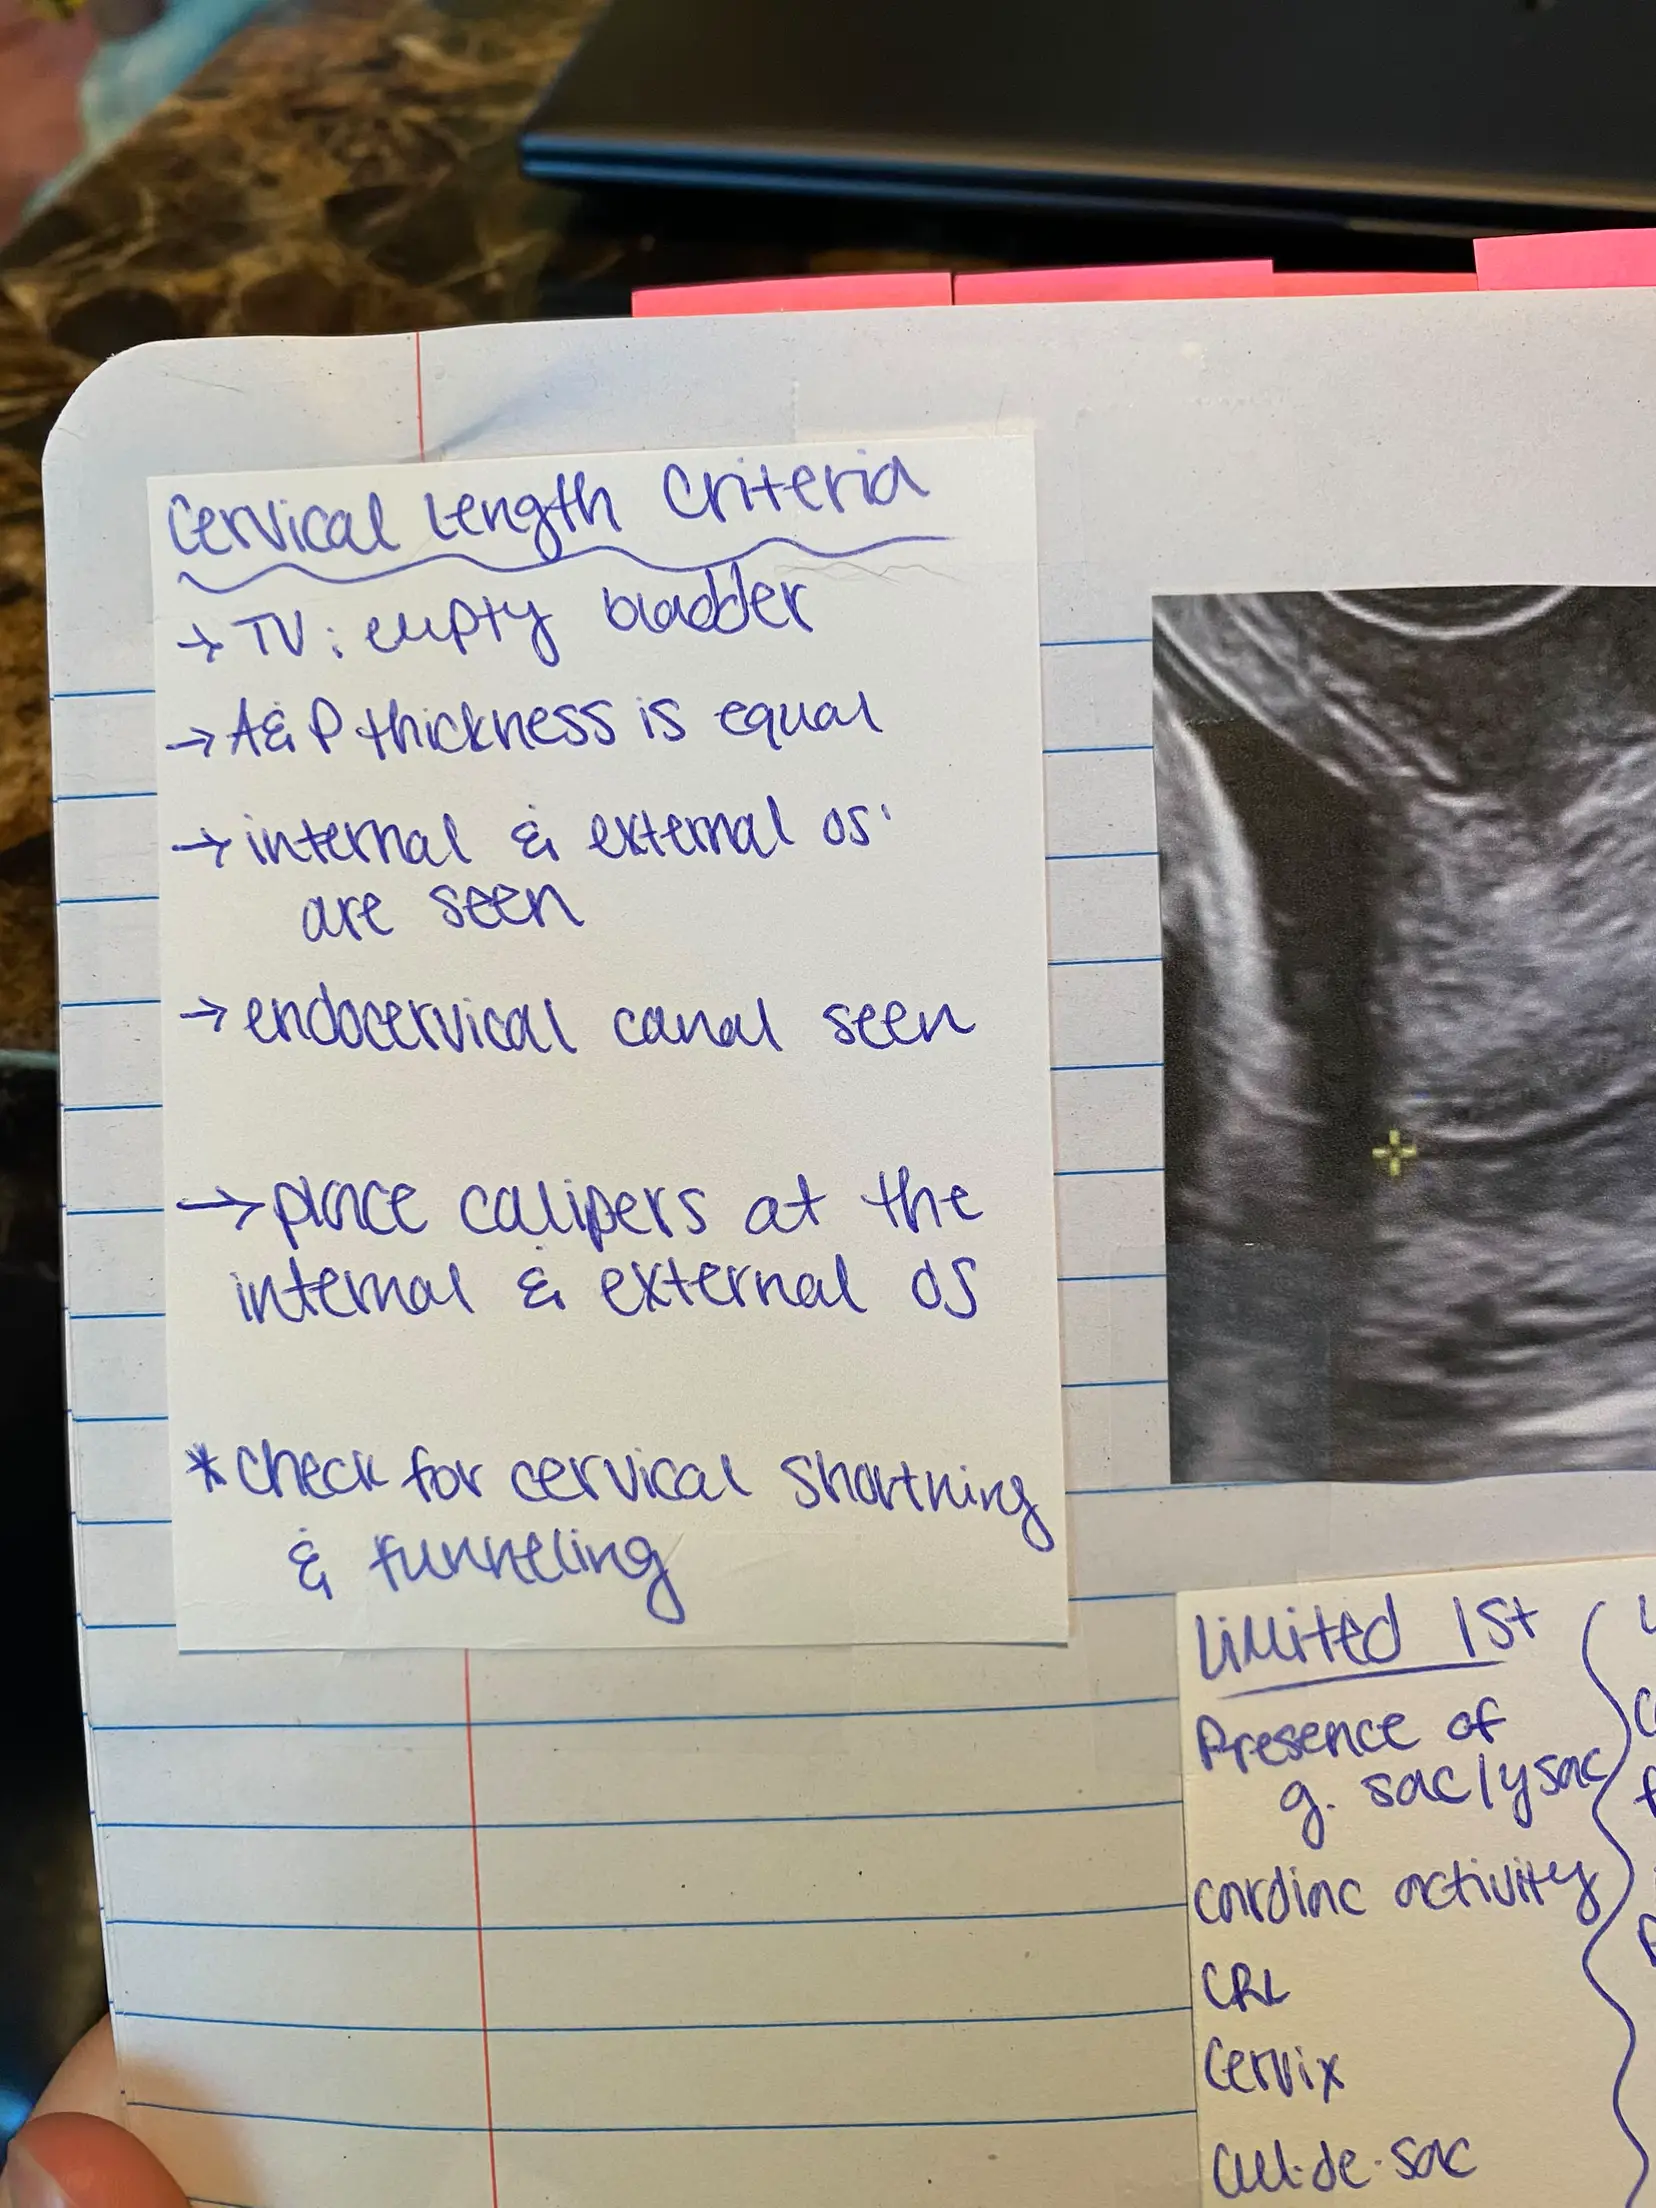 Cervical Length Criteria
→ TV: empty bladder
→ A & P thickness is equal
→ internal & external os
are seen
→ endocervical canal seen
→ place calipers at the
internal & external os
* Check for cervical Shortning
& funneling
Limited 1st
Presence of
g. sac/ysac
cardiac activity
CRL
Cervix
Cul-de-sac